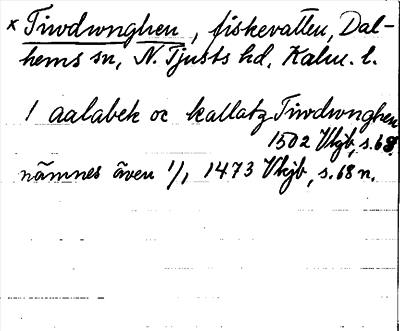 x Tiwdwnghen, fiskevatten, Dal-
hems sn, N. Tjusts hd, Kalm. l.
1 aalabek oc kallatz Tiwdwnghen
1502 Vkjb, s. 68.
nämnes även 1/1 1473 Vkjb, s. 68 n.